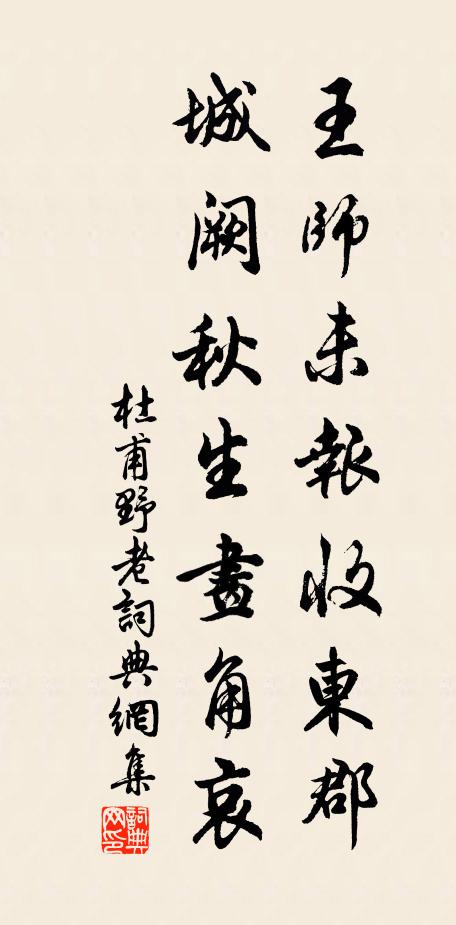 王師未報收東郡
城阙秋生畫角哀
杜甫野老詞典網集
詞典网印